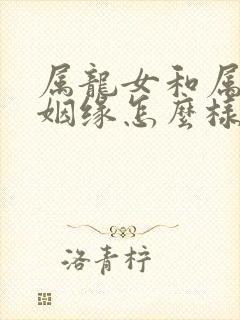 属龍女和属
姻缘怎麽樣
洛青柠